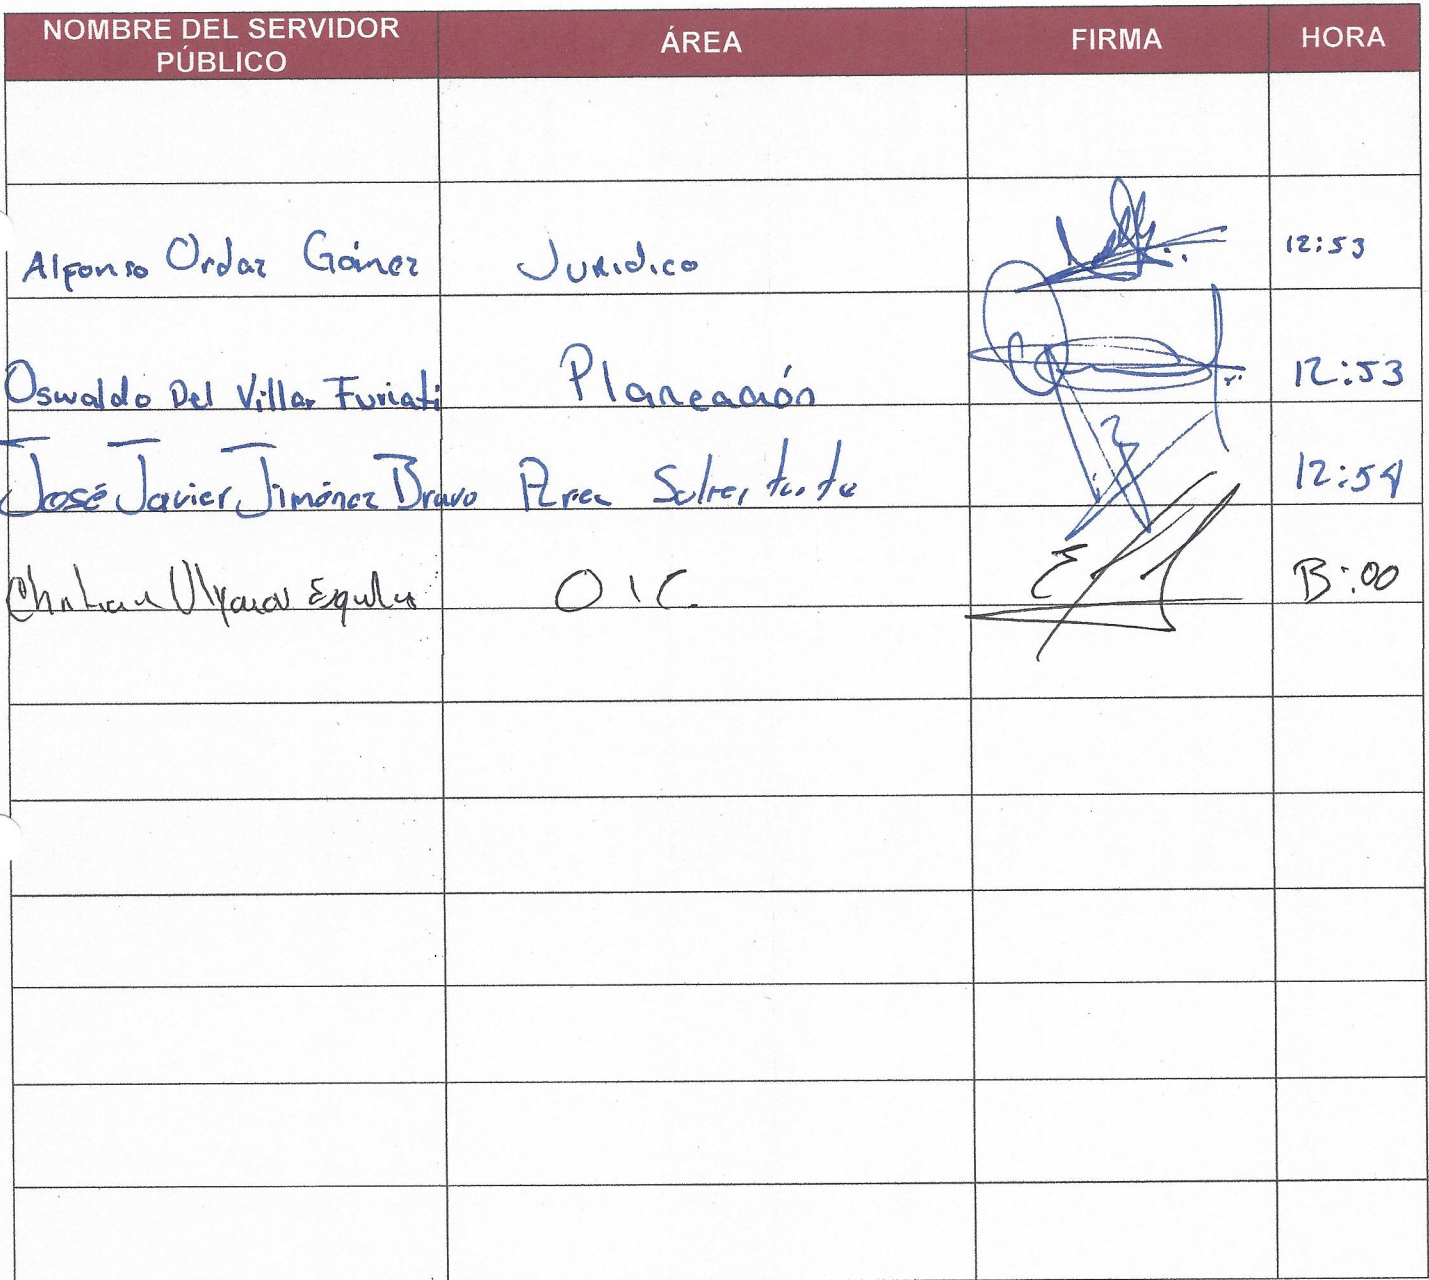 NOMBRE DEL SERVIDOR
PÚBLICO
ÁREA
FIRMA
HORA
Alfonso Ordaz Gámez Juridico 12:53
Oswaldo Del Villar Furiati Planeación 12:53
José Javier Jiménez Bravo Area 12:54
OIC 13:00